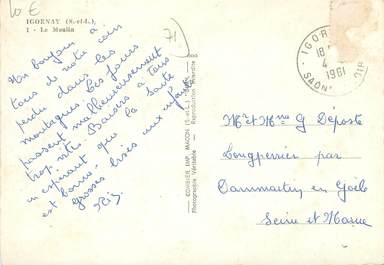 10 €
IGORNAY (S.-et-L.)
1 - Le Moulin
71
Un bonjour à
tous de notre coin
perdu dans les
montagnes. Les jours
passent malheureusement
trop vite. Baisers à tous
en espérant que la santé
est bonne.
Grosses bises aux
COMBIER IMP. MACON (S.-et-L.)
Photographie Véritable - Reproduction Interdite
IGOR
18
4
1961
SAON
Mr et Mme G Déposte
Longperrier par
Dammartin en Goële
Seine et Marne